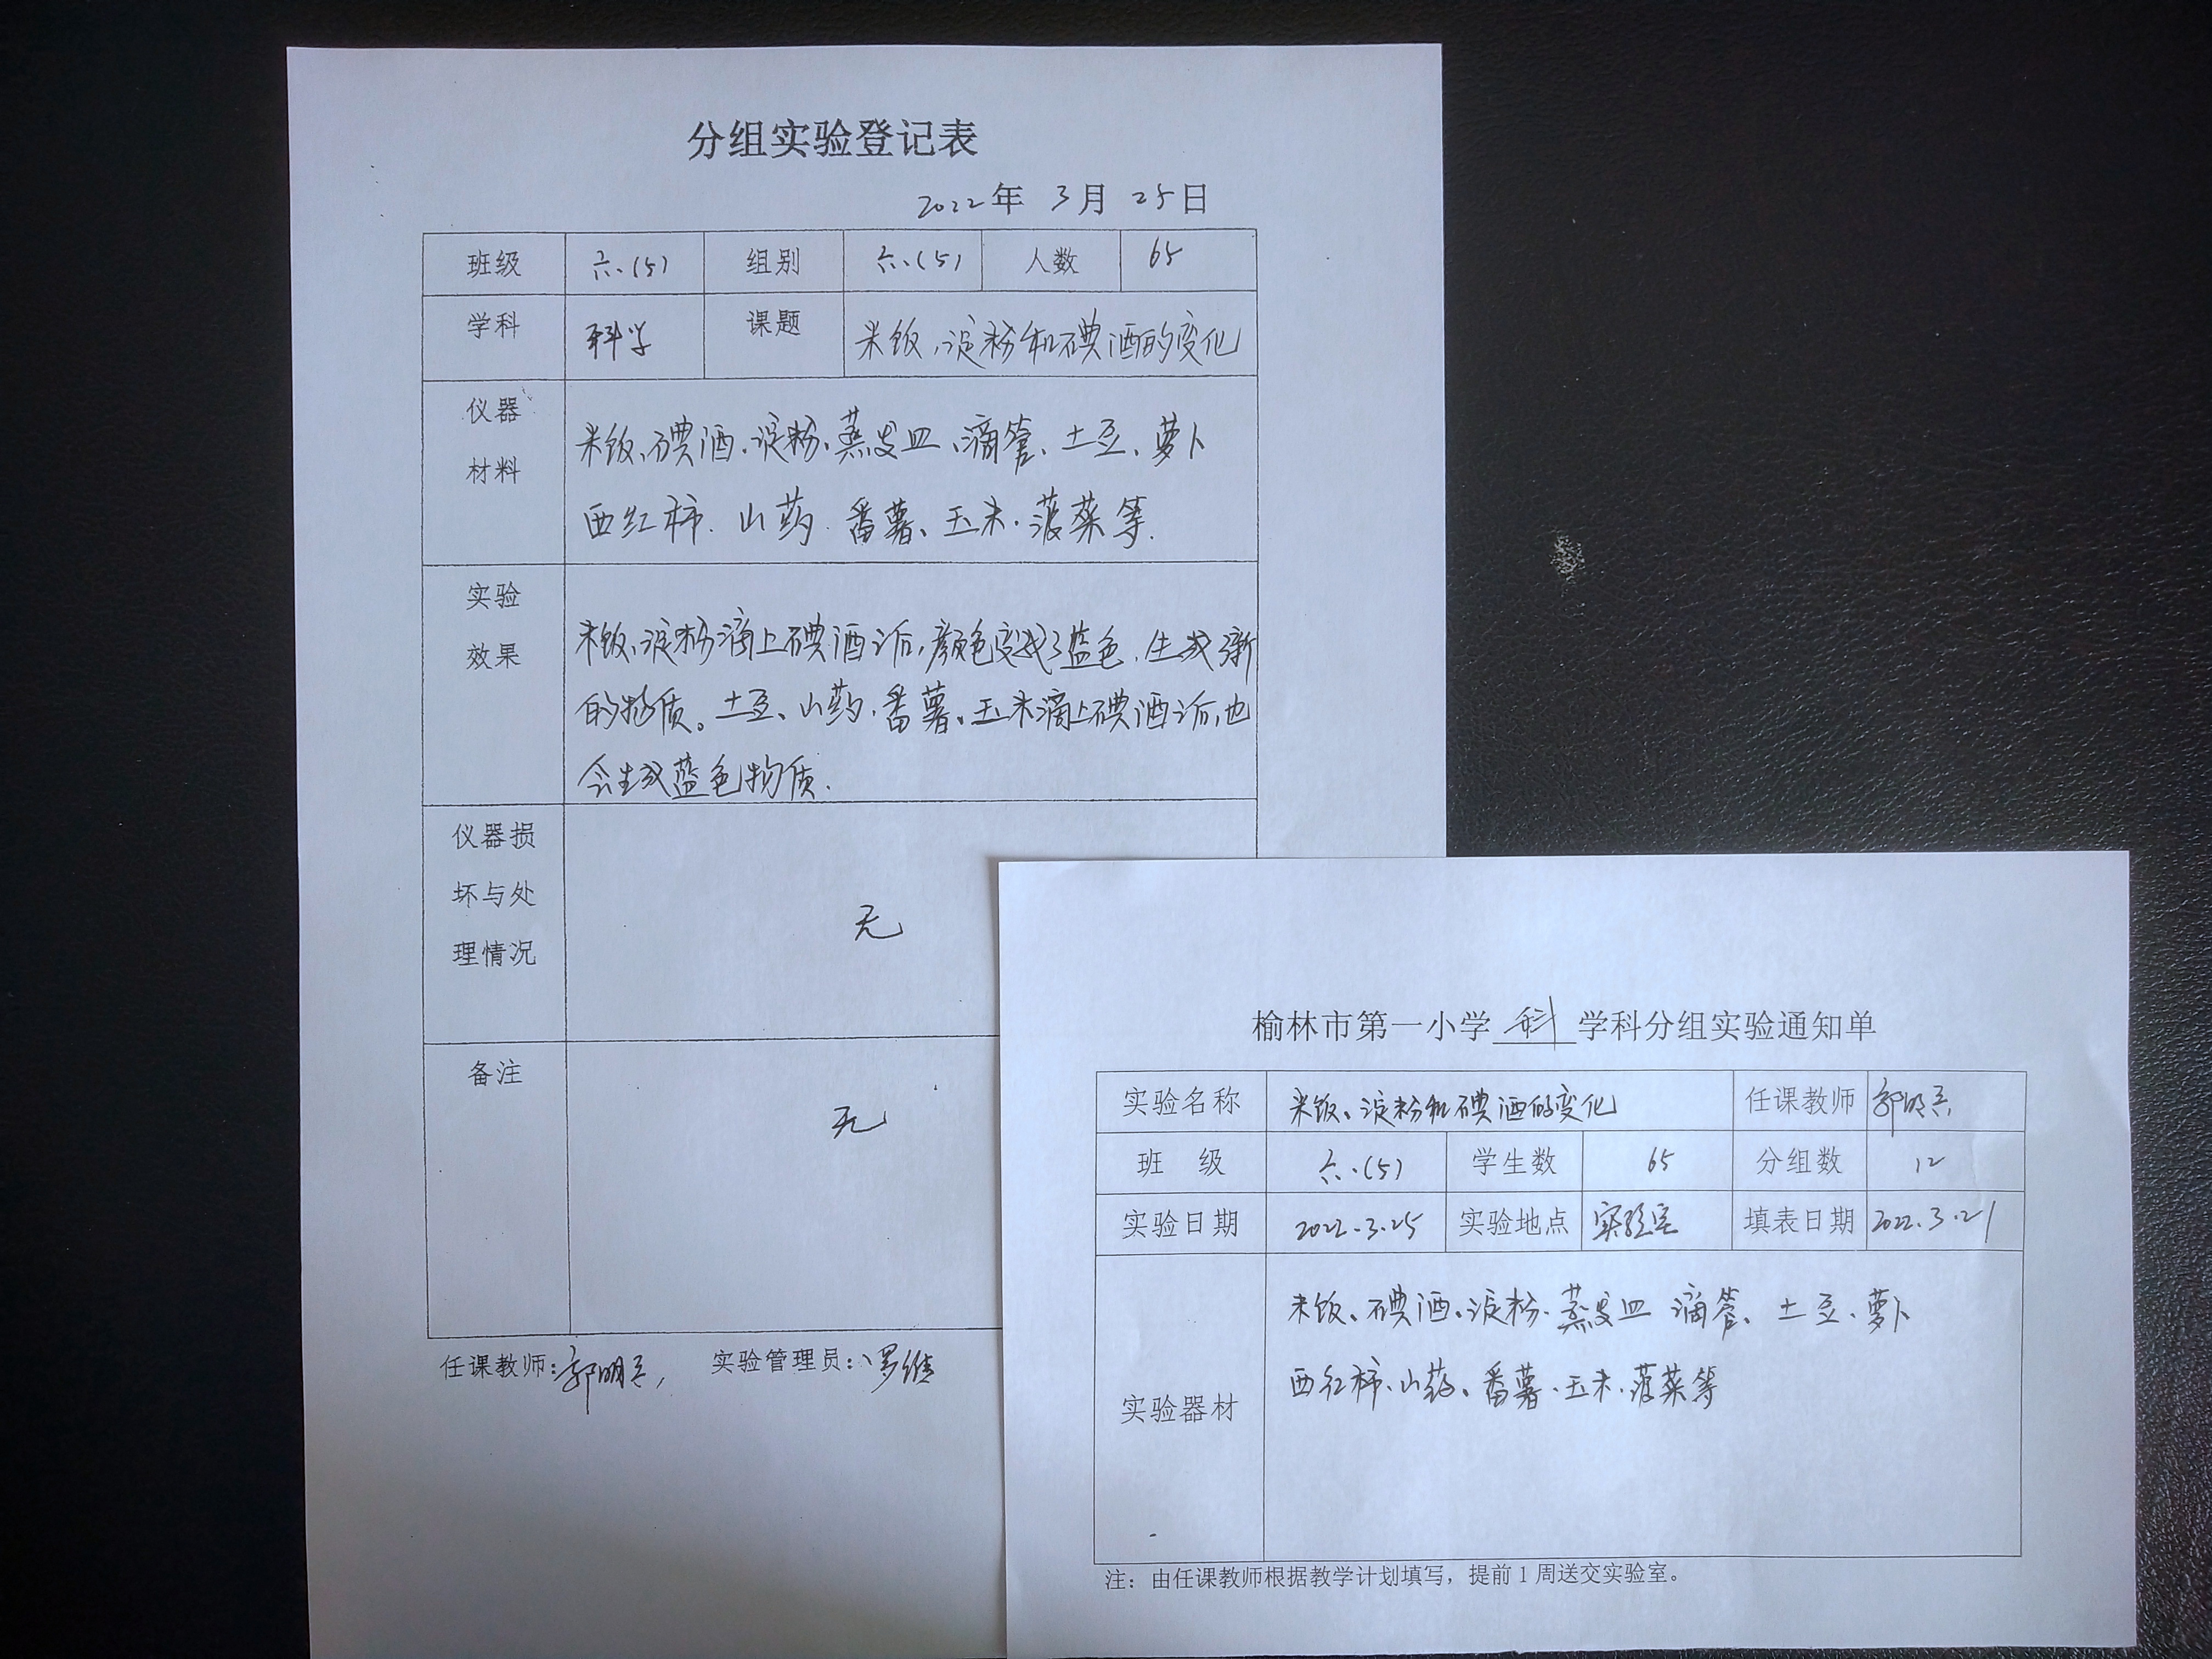 分组实验登记表
2022年 3月 25日
班级 六.(5) 组别 六.(5) 人数 65
学科 科学 课题 米饭、淀粉和碘酒的变化
仪器
材料
米饭、碘酒、淀粉、蒸发皿、滴管、土豆、萝卜
西红柿、山药、番薯、玉米、菠菜等.
实验
效果
米饭、淀粉滴上碘酒后,颜色变成了蓝色,生成新
的物质。土豆、山药、番薯、玉米滴上碘酒后,也
会生成蓝色物质.
仪器损
坏与处
理情况
无
备注
无
任课教师: 郭明 实验管理员: 罗维
榆林市第一小学 科 学科分组实验通知单
实验名称 米饭、淀粉和碘酒的变化 任课教师 郭明
班 级 六.(5) 学生数 65 分组数 12
实验日期 2022.3.25 实验地点 实验室 填表日期 2022.3.21
实验器材
米饭、碘酒、淀粉、蒸发皿 滴管、土豆、萝卜
西红柿、山药、番薯、玉米、菠菜等
注：由任课教师根据教学计划填写，提前1周送交实验室。